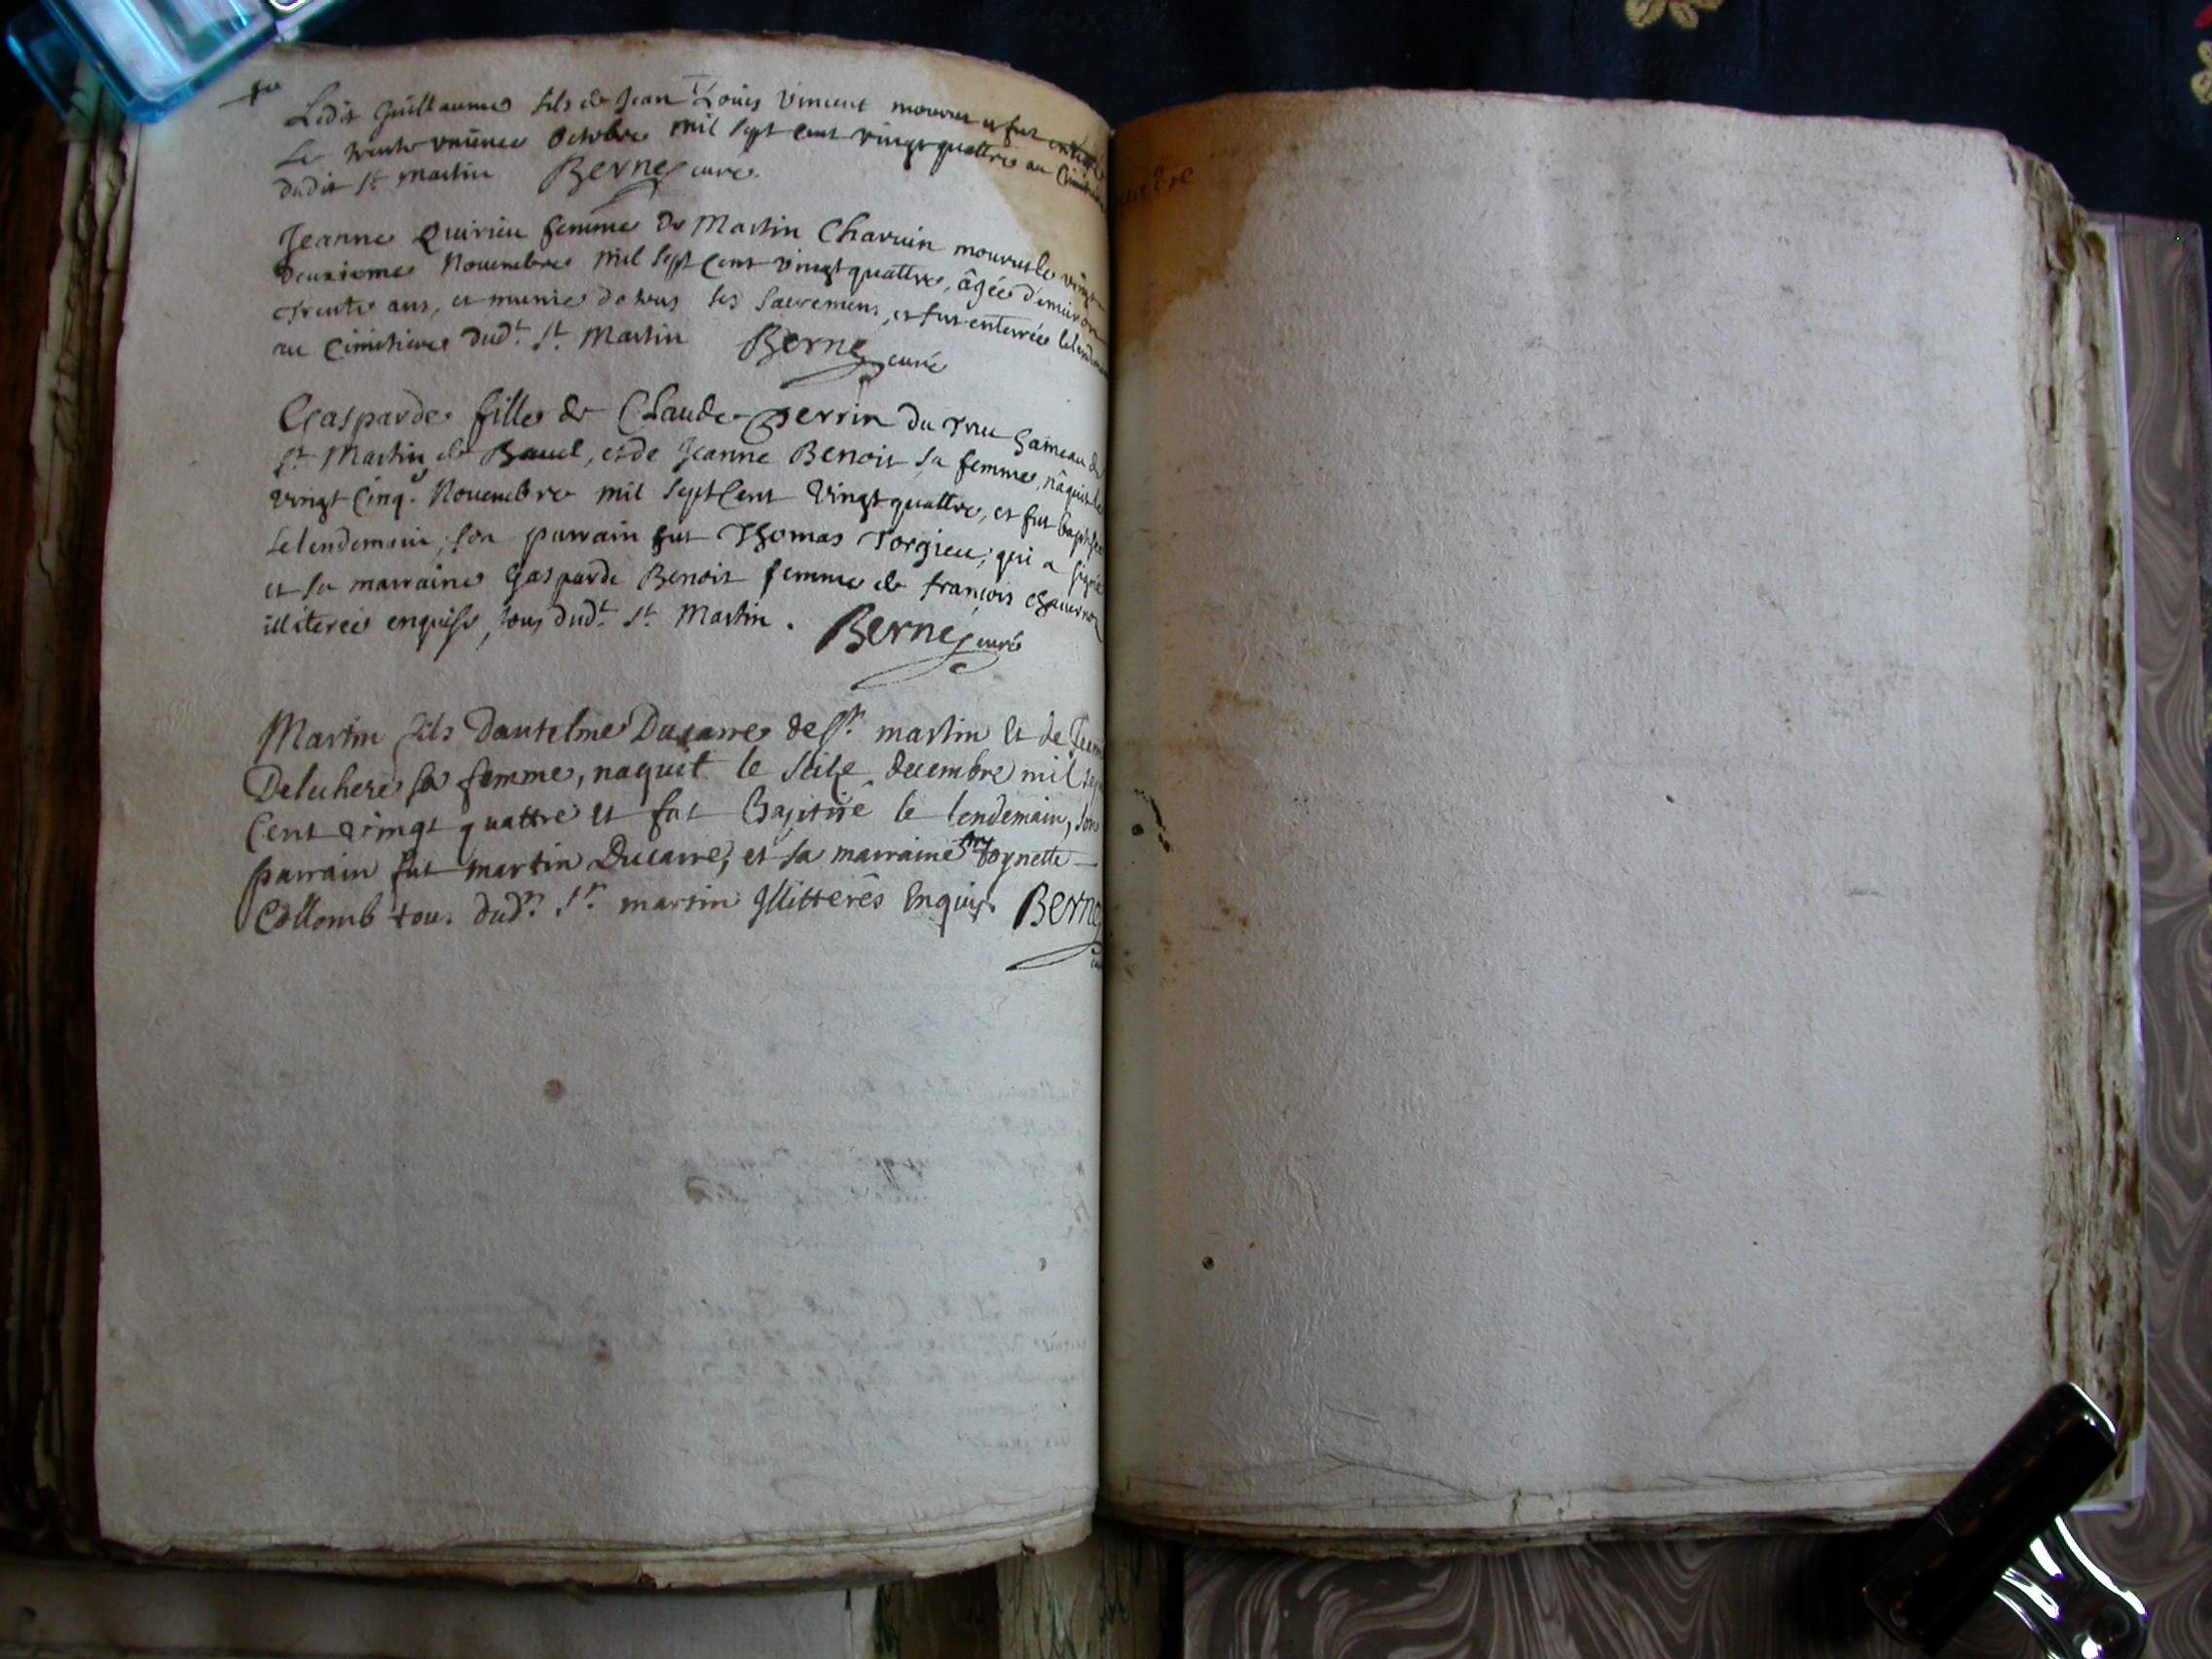 Ledit Guillaume fils de Jean Louis Vincent mourut et fut
Le trente unieme Octobre mil sept cent vingt quattre au
dudit St. Martin Berne curé.
Jeanne Quirieu femme de Martin Charuin mourut le vingt
deuxieme Nouembre mil sept cent vingt quattre, âgée d'enuiron
Trente ans, et munie de tous ses sacremens, et fut enterrée
au Cimitiere dudt. St. Martin Berne curé
Gasparde fille de Claude Perrin du hameau de
St. Martin de Bauel, et de Jeanne Benoit sa femme, naquit le
vingt Cinq. Nouembre mil sept Cent vingt quattre, et fut baptisée
le lendemain, son parrain fut Thomas Torgieu, qui a signé
et sa marraine Gasparde Benoit femme de françois
illiterée enquise, tous dudt. St. Martin. Berne curé
Martin fils Dantelme Ducarre de St. martin Et de
Deluchere sa femme, naquit le seize decembre mil sept
Cent vingt quattre Et fut Baptisé le lendemain, son
parrain fut martin Ducarre, et sa marraine Antoynette
Collomb tous dudt. St. martin Illitterés Enquis. Berne